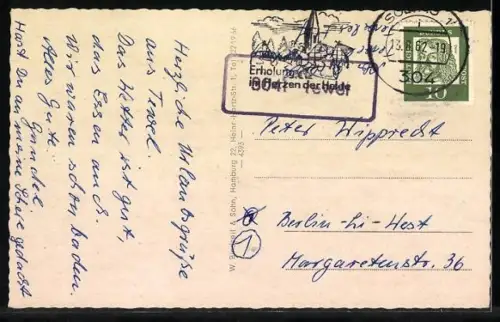 Herzliche Urlaubsgrüße
aus Tewel.
Das Wetter ist gut,
das Essen auch.
Wir waren schon baden.
Alles Gute.
Gundel
Hast Du an meine Schere gedacht
W. & Sohn, Hamburg 22, Heinr.-Hertz-Str. 1, Tel. 22 19 41
— 4393 —
Erholung
im Herzen der Heide
SOLTAU
13.6.62.-19
304
10
Peter Wipprecht
1
Berlin-Li-West
Margaretenstr. 36